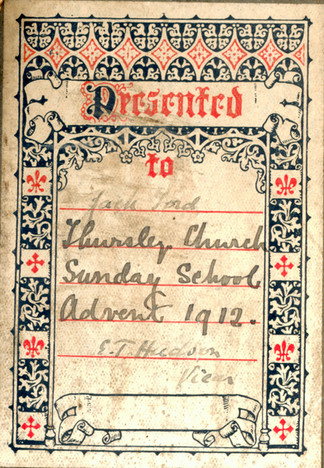 Presented
to
Jack Ford
Thursley Church
Sunday School
Advent 1912.
E.T. Hudson
Vicar